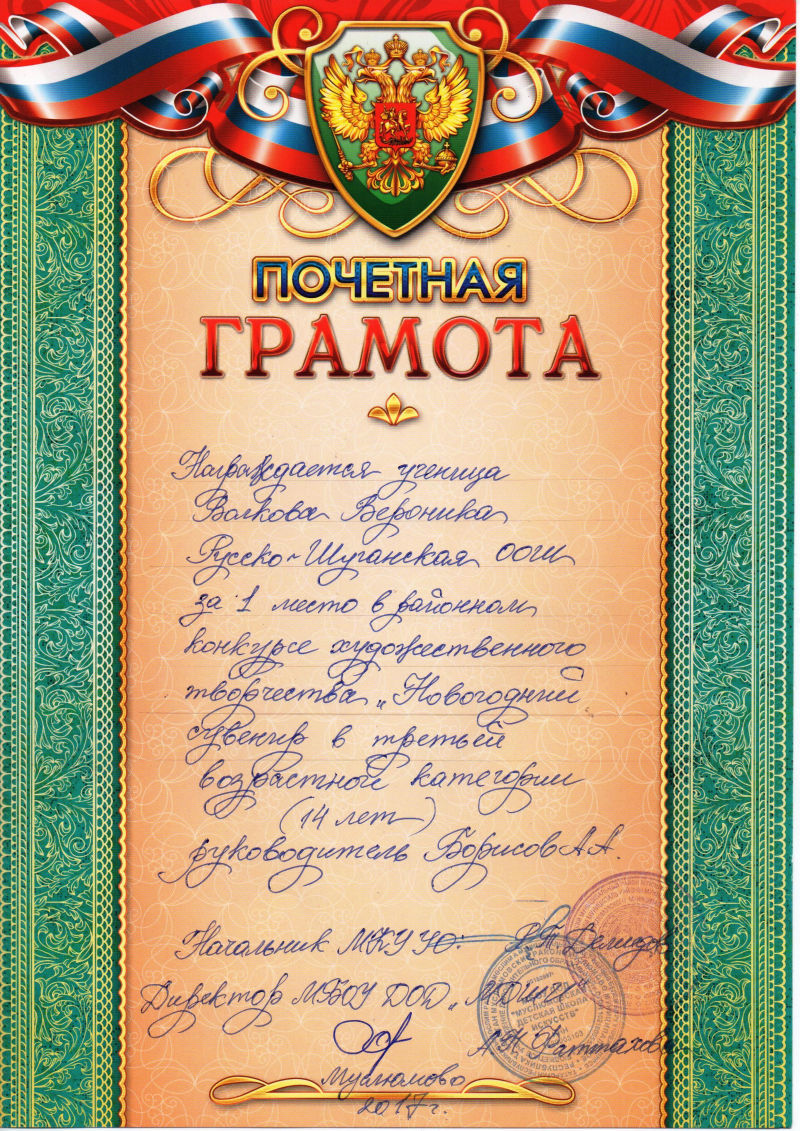 ПОЧЕТНАЯ
ГРАМОТА
Награждается ученица
Волкова Вероника
Русско-Шуганская ООШ
за 1 место в районном
конкурсе художественного
творчества „Новогодний
сувенир в третьей
возрастной категории
(14 лет)
руководитель Борисов А А.
Начальник МКУ УО:
Директор МБОУ ДОД
"МУСЛЮМОВСКАЯ
ДЕТСКАЯ ШКОЛА
ИСКУССТВ"
А.Т. Фаттахова
Муслюмово
2017г.